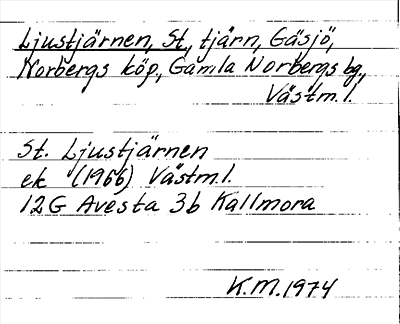 Ljustjärnen, St, tjärn, Gäsjö,
Norbergs köp., Gamla Norbergs bg,
Västm.l.
St. Ljustjärnen
ek (1966) Västm.l.
12G Avesta 3b Kallmora
K.M.1974